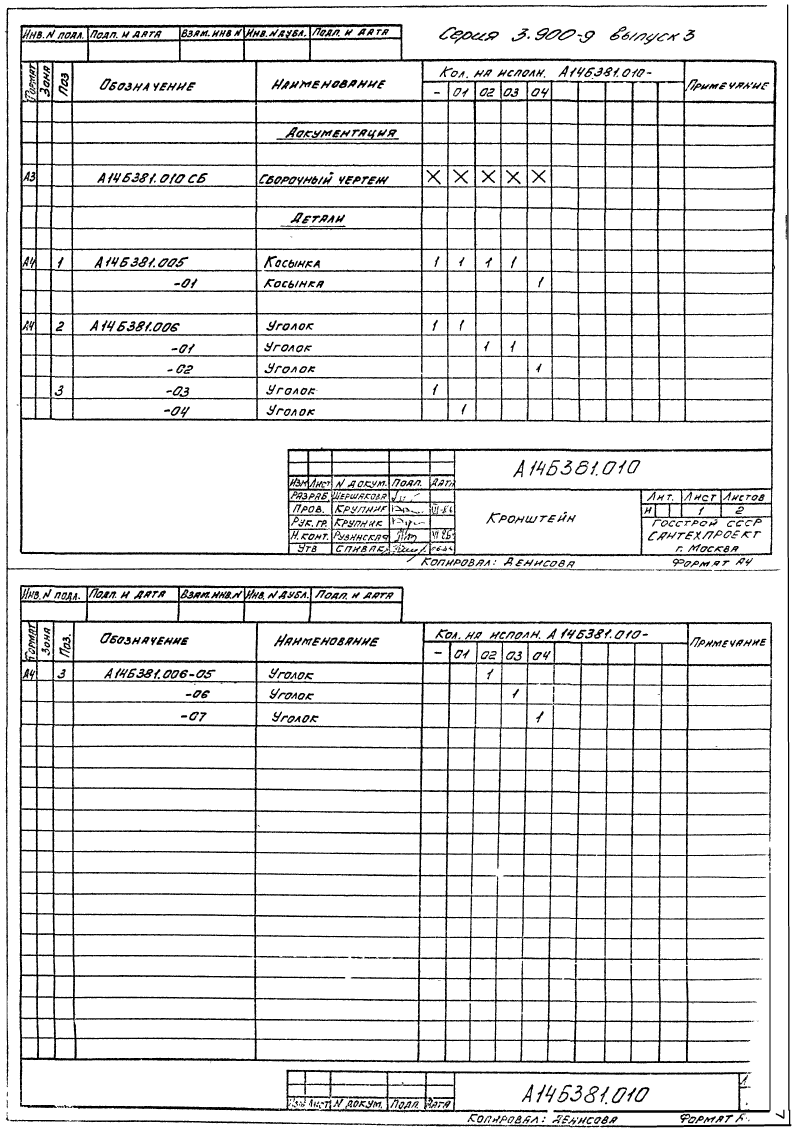 Инв. N подл. Подп. и дата Взам. инв N Инв. N дубл. Подп. и дата
Серия 3.900-9 выпуск 3
Формат Зона Поз Обозначение Наименование Кол. на исполн. А14Б381.010- Примечание
- 01 02 03 04
Документация
А3 А14Б381.010 СБ Сборочный чертеж X X X X X
Детали
А4 1 А14Б381.005 Косынка 1 1 1 1
-01 Косынка 1
А4 2 А14Б381.006 Уголок 1 1
-01 Уголок 1 1
-02 Уголок 1
3 -03 Уголок 1
-04 Уголок 1
А14Б381.010
Изм Лист N докум. Подп. Дата
Разраб. Шершакова
Пров. Крупник
Рук. гр. Крупник
Н. конт. Рузинская
Утв Спивак
Кронштейн
Лит. Лист Листов
И 1 2
Госстрой СССР
Сантехпроект
г. Москва
Копировал: Денисова Формат А4
Инв. N подл. Подп. и дата Взам. инв. N Инв. N дубл. Подп. и дата
Формат Зона Поз. Обозначение Наименование Кол. на исполн. А14Б381.010- Примечание
- 01 02 03 04
А4 3 А14Б381.006-05 Уголок 1
-06 Уголок 1
-07 Уголок 1
А14Б381.010
Изм Лист N докум. Подп. Дата
Копировал: Денисова Формат